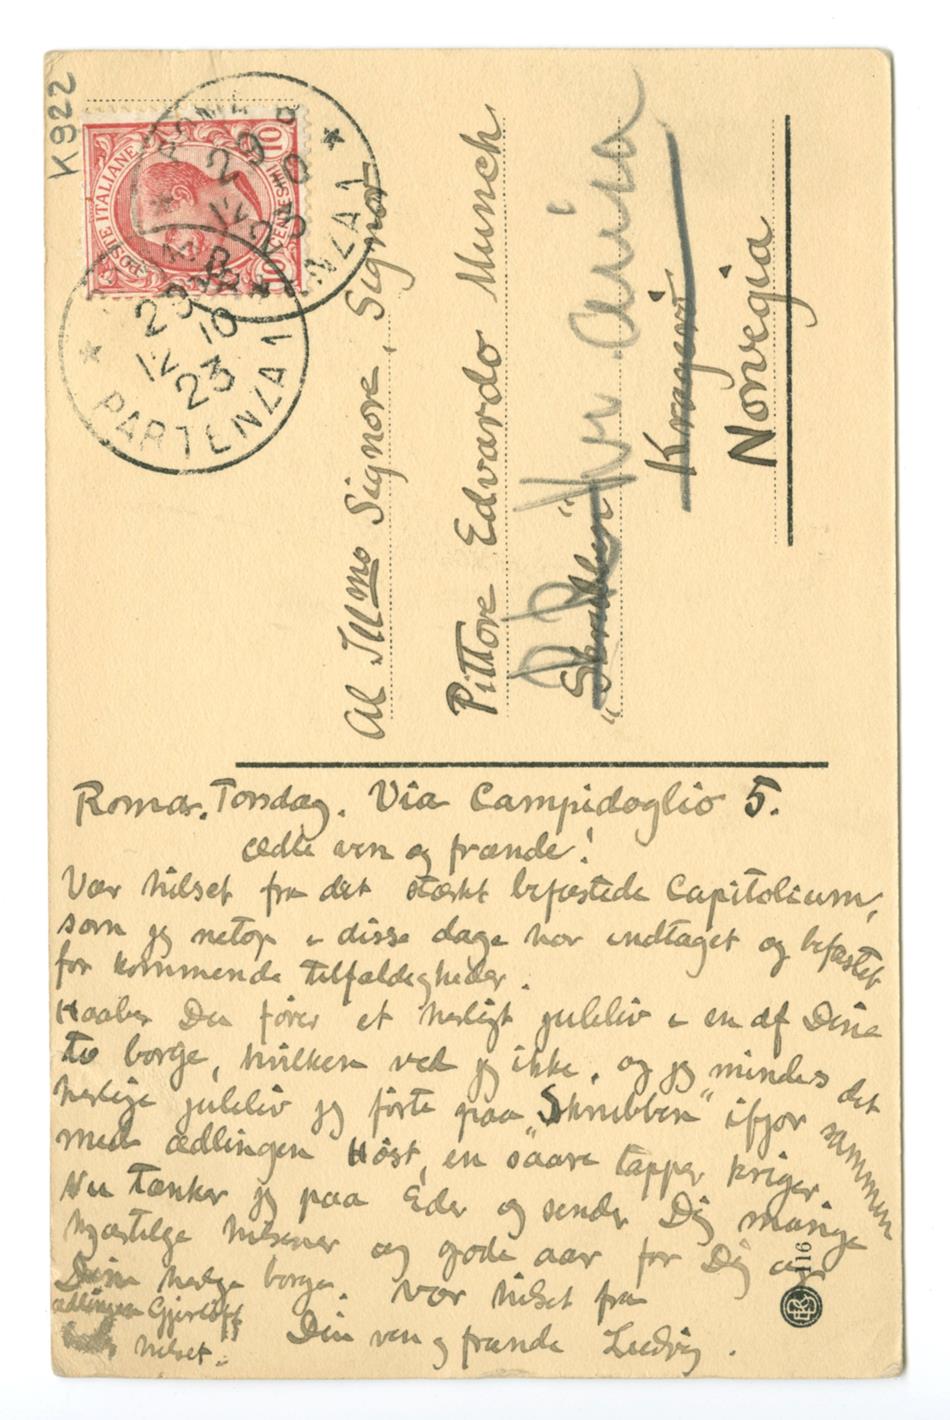 K922
POSTE ITALIANE
CENTESIMI 10
ROMA
29 12 10 23
PARTENZA 1
29 12 10 23
PARTENZA 1
Al Illmo Signore, Signor
Pittore Edvardo Munch
"Skrubben"
Kragerö
Norvegia
Roma. Torsdag. Via Campidoglio 5.
Ædle ven og frænde!
Vær hilset fra det stærkt befæstede Capitolium,
som jeg netop i disse dage har indtaget og befæstet
for kommende tilfældigheder.
Haaber Du fører et herligt juleliv i en af Dine
to borge, hvilken ved jeg ikke, og jeg mindes det
herlige juleliv jeg førte paa "Skrubben" ifjor sammen
med ædlingen Høst, en saare tapper kriger.
Nu tænker jeg paa Eder og sender Dig mange
hjærtelige hilsener og gode aar for Dig og
Dine borge. Vær hilset fra
Din ven og frænde Ludvig.
ædlingen Gjerløff
hilset.
116